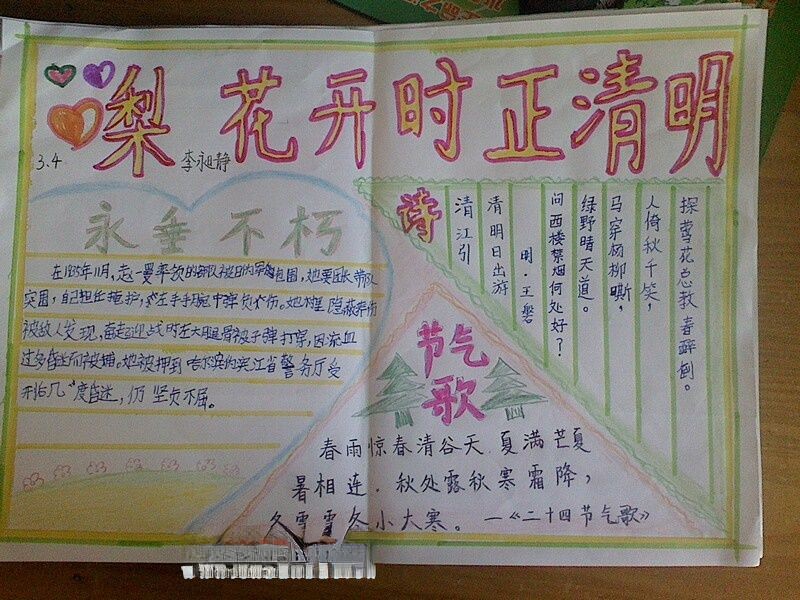 梨花开时正清明
3.4
永垂不朽
在1935年11月,赵一曼率领的部队被日伪军包围,她要团长带队
突围,自己担任掩护,左手手腕中弹负伤。她在村里隐蔽养伤
被敌人发现,奋起迎战时左大腿骨被子弹打穿,因流血
过多昏迷而被捕。她被押到哈尔滨的滨江省警务厅受
刑后几度昏迷,仍坚贞不屈。
诗
清江引
清明日出游
明·王磐
问西楼禁烟何处好?
绿野晴天道。
马穿杨柳嘶,
人倚秋千笑,
探莺花总教春醉倒。
节气
歌
春雨惊春清谷天,夏满芒夏
暑相连,秋处露秋寒霜降,
冬雪雪冬小大寒。—《二十四节气歌》